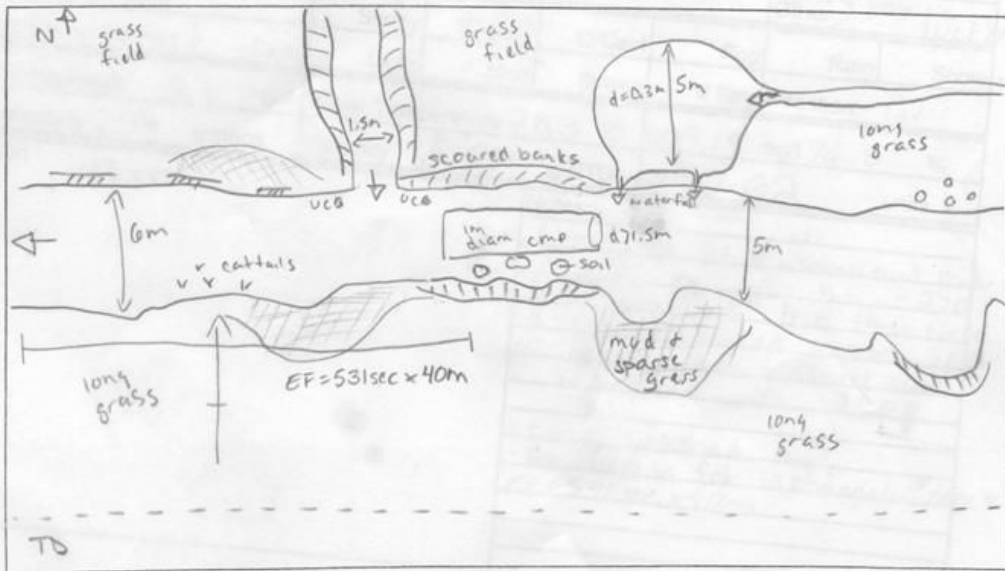 N
grass
field
grass
field
1.5m
d=0.3m 5m
long
grass
scoured banks
UCB
UCB
waterfall
6m
1m
diam cmp
d>1.5m
5m
soil
cattails
mud &
sparse
grass
EF=531sec × 40m
long
grass
long
grass